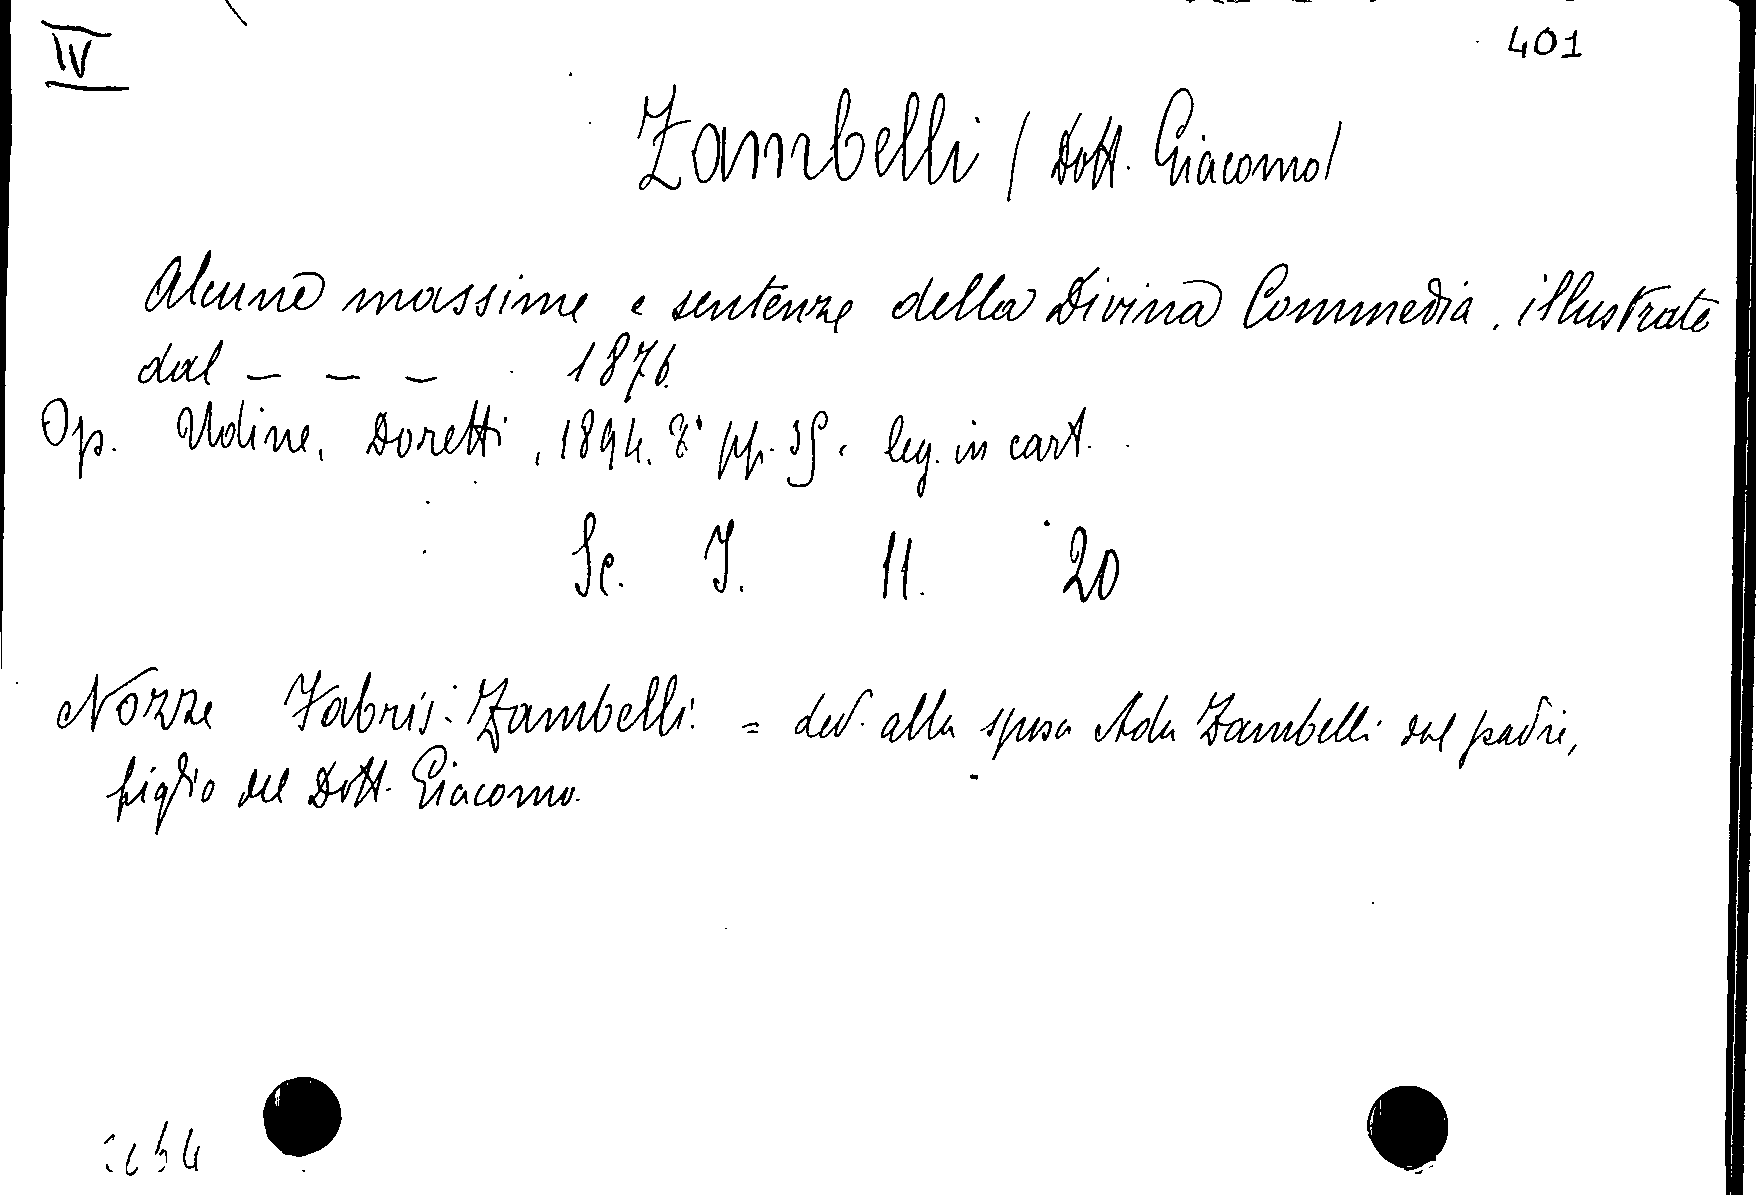 IV
401
Zambelli / Dott. Giacomo/
Alcune massime e sentenze della Divina Commedia, illustrate
dal _ _ _ 1876.
Op. Udine, Doretti, 1894. 8° pp. 35. leg. in cart.
Sc. I. 11. 20
Nozze Fabris-Zambelli. = ded. alla sposa Ada Zambelli dal padre,
figlio del Dott. Giacomo.